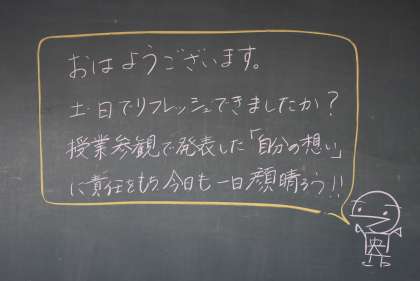 おはようございます。
土・日でリフレッシュできましたか？
授業参観で発表した「自分の想い」
に責任をもち今日も一日顔晴ろう!!
央